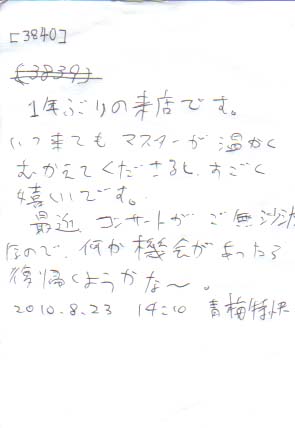 [3840]
(3839)
1年ぶりの来店です。
いつ来てもマスターが温かく
むかえてくださると、すごく
嬉しいです。
最近、コンサートがご無沙汰
なので、何か機会があったら
復帰しようかな〜。
2010.8.23 14:10 青梅特快